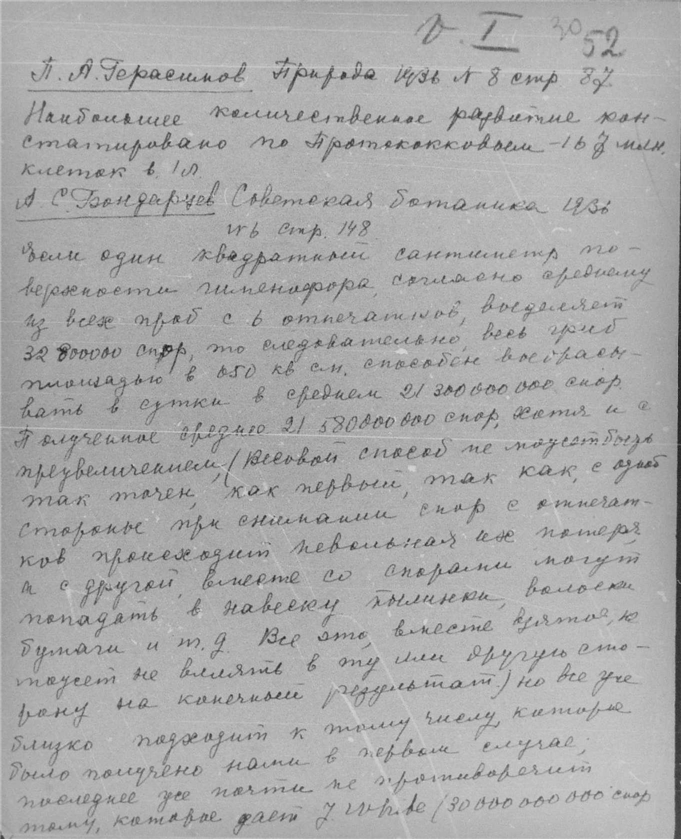 V. I 30 52
П. А. Герасимов Природа 1936 N 8 стр 87
Наибольшее количественное развитие кон-
статировано по Протококковым - 167 млн.
клеток в 1 л.
А. С. Бондарцев Советская ботаника 1936
N 6 стр. 148
Если один квадратный сантиметр по-
верхности гименофора, согласно среднему
из всех проб с 6 отпечатков, выделяет
32 800000 спор, то следовательно, весь гриб
площадью в 650 кв см. способен выбрасы-
вать в сутки в среднем 21 300 000 000 спор.
Полученное среднее 21 580 000 000 спор, хотя и с
преувеличением, (Весовой способ не может быть
так точен, как первый, так как, с одной
стороны при снимании спор с отпечат-
ков происходит невольная их потеря,
и с другой, вместе со спорами могут
попадать в навеску пылинки, волоски
бумаги и т. д. Все это, вместе взятое,
может не влиять в ту или другую сто-
рону на конечный результат) но все же
близко подходит к тому числу, которое
было получено нами в первом случае;
последнее же почти не противоречит
тому, которое дает (30 000 000 000 спор